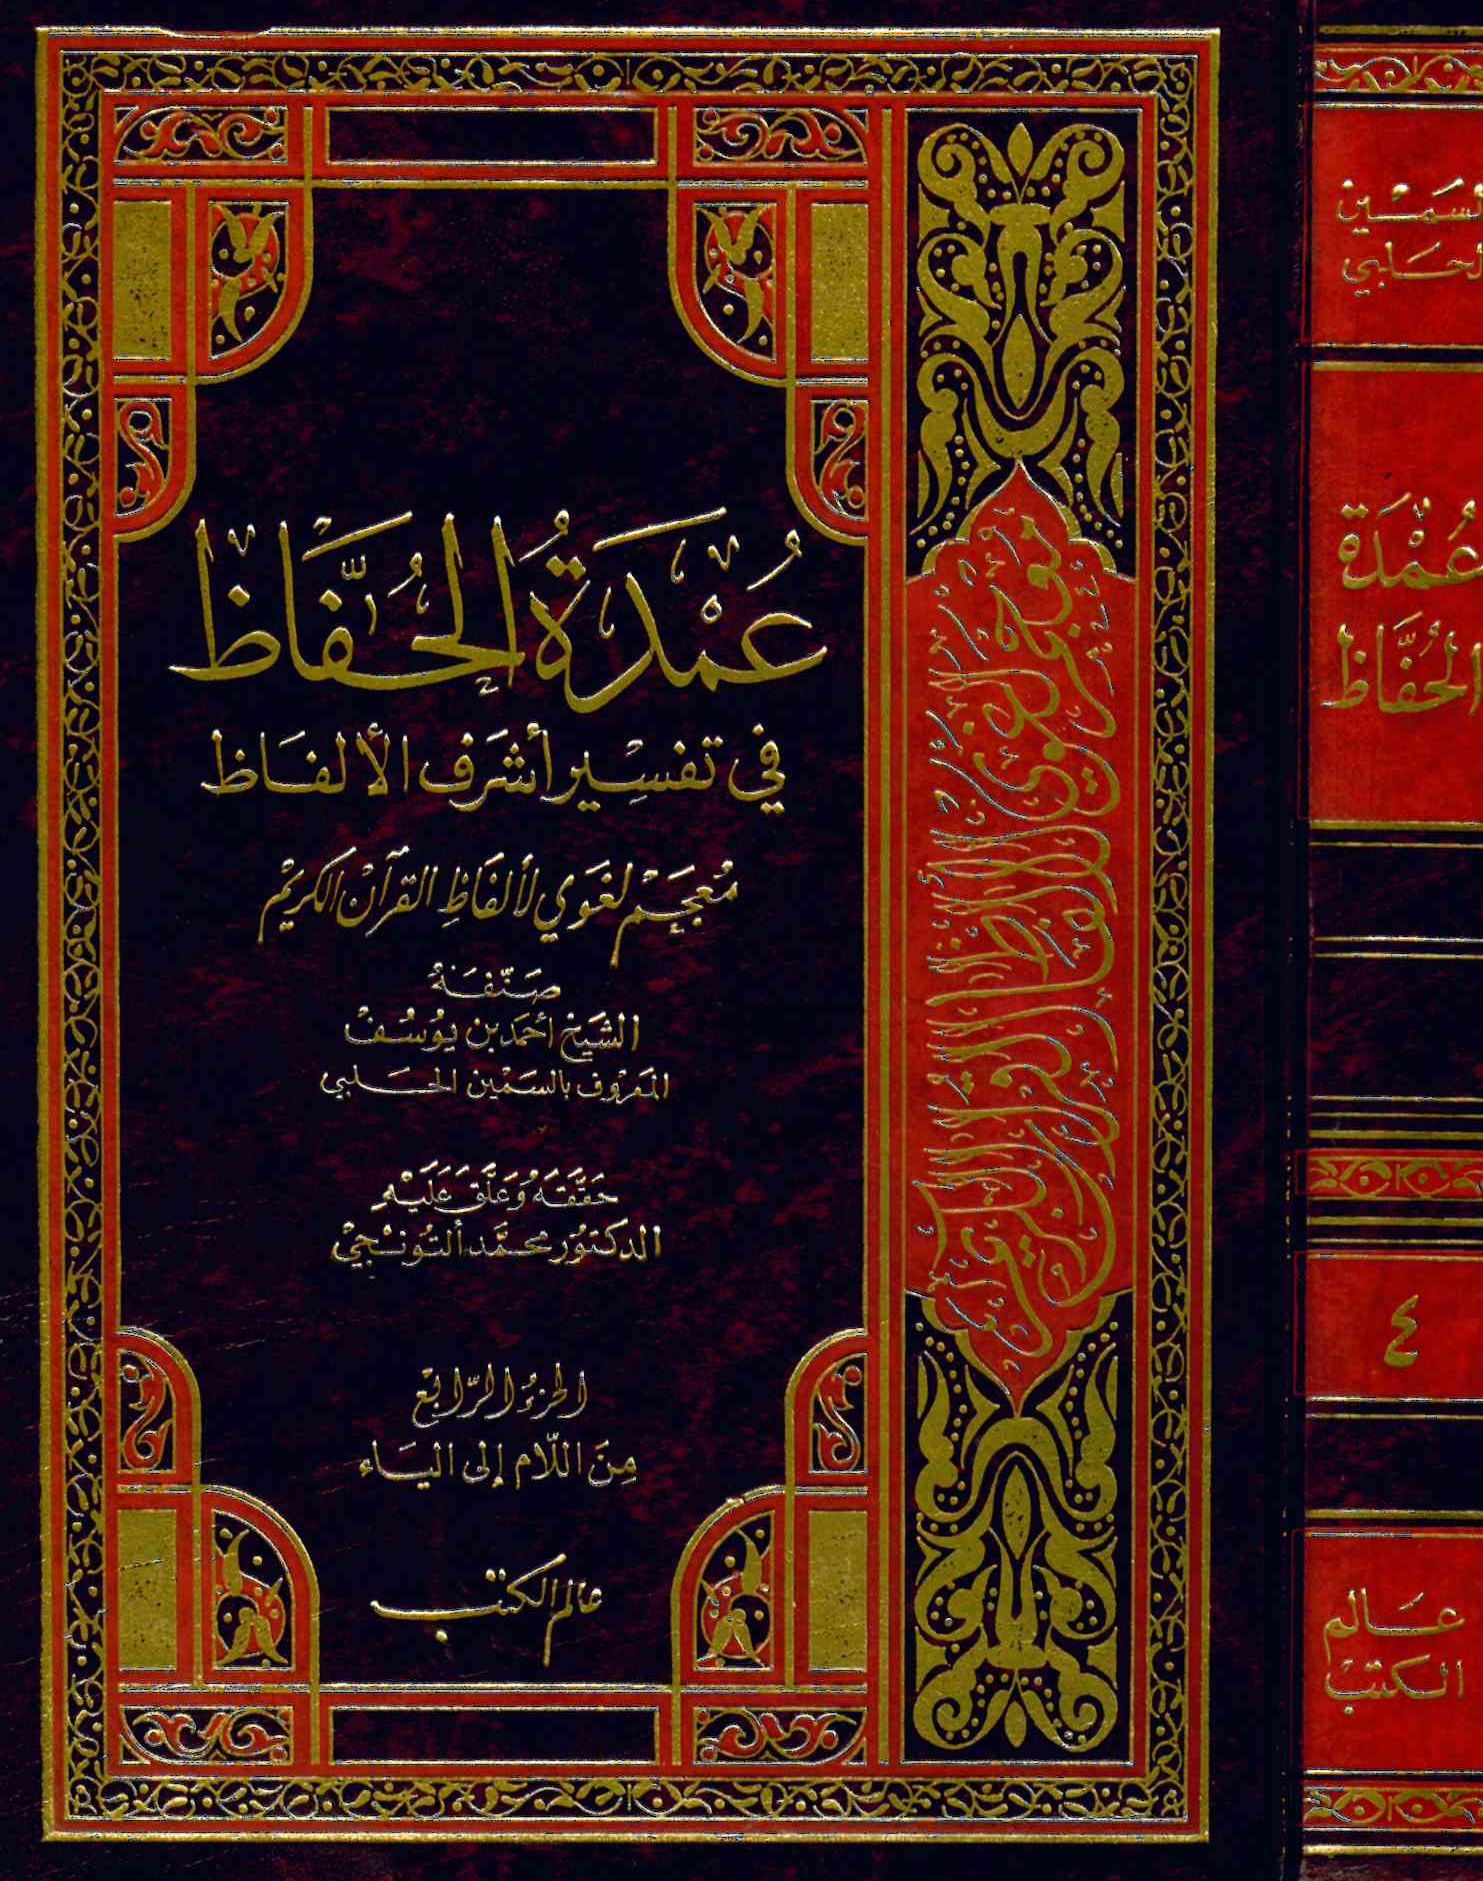 عُمْدَةُ الحُفَّاظ
في تفسِير أشرَف الألفَاظ
مُعجَمْ لغَوي لألفَاظِ القرآن الكريمْ
صَنّفَهُ
الشيَخ أحمَد بن يوُسُفْ
المعَروف بالسَمْين الحَلبي
حَقّقَهُ وَعَلَّق عَلَيْهِ
الدكتوُر محمَّد ألتوُنجيْ
الجزءُ الرّابع
مِنَ اللّام إلى اليَاء
عالم الكتب
معجم لغوي لألفاظ القرآن الكريم
السَمين
الحَلبي
عُمْدَة
الحُفَّاظ
٤
عَالم
الكتبْ